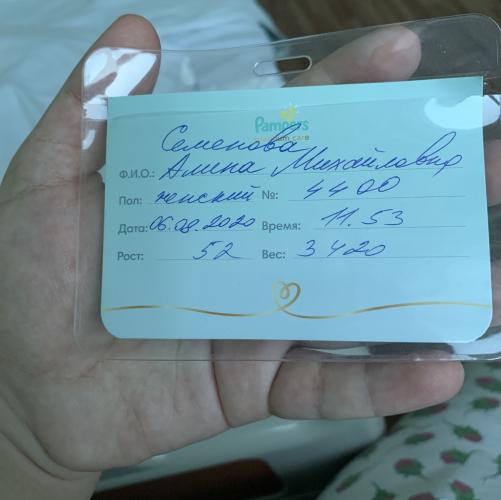 Pampers
premium care
Семенова
Ф.И.О.: Алина Михайловна
Пол: женский №: 4400
Дата: 06.08.2020 Время: 11.53
Рост: 52 Вес: 3420